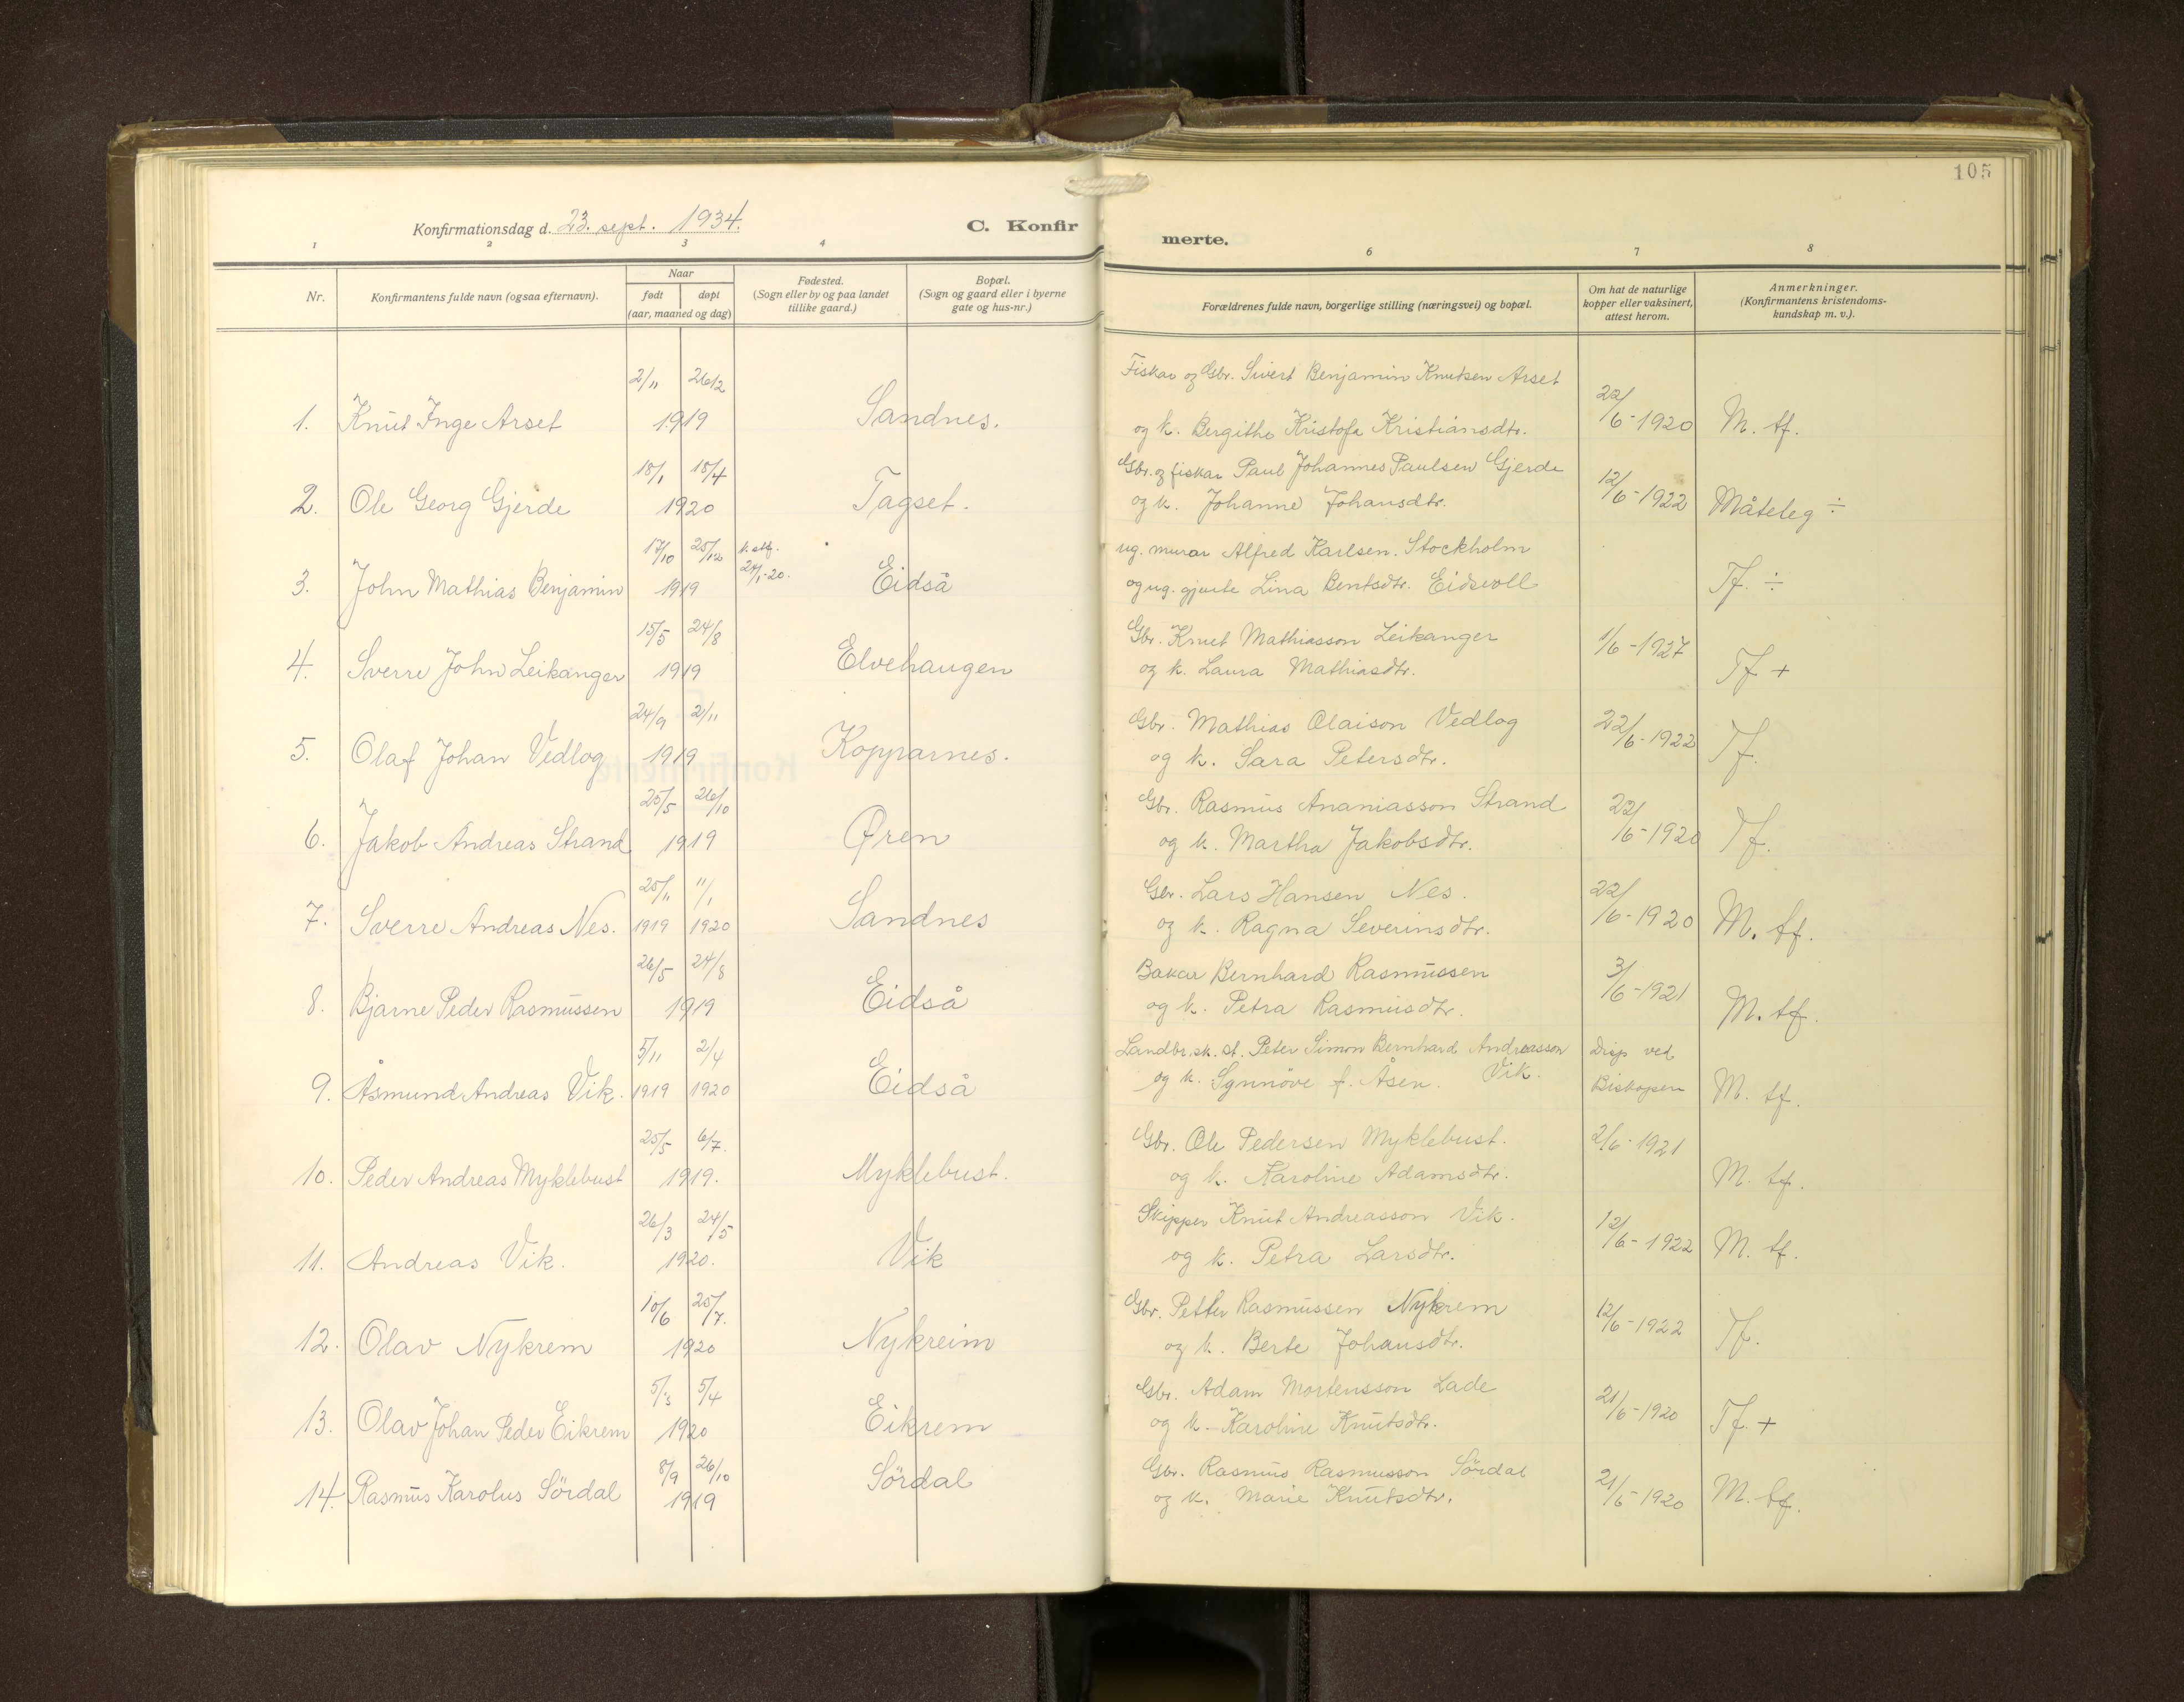 105
Konfirmationsdag d. 23. sept. 1934.
C. Konfirmerte.
1 2 3 4 6 7 8
Nr.
Konfirmantens fulde navn (ogsaa efternavn).
Naar
født døpt
(aar, maaned og dag)
Fødested.
(Sogn eller by og paa landet
tillike gaard.)
Bopæl.
(Sogn og gaard eller i byerne
gate og hus-nr.)
Forældrenes fulde navn, borgerlige stilling (næringsvei) og bopæl.
Om hat de naturlige
kopper eller vaksinert,
attest herom.
Anmerkninger.
(Konfirmantens kristendoms-
kundskap m. v.).
2/11 26/12 Fiskar og Gbr. Sivert Benjamin Knutsen Arset
1. Knut Inge Arset 1919 Sandnes. og k. Bergithe Kristofa Kristiansdtr. 22/6-1920 M. tf.
18/1 18/4 Gbr. og fiskar Paul Johannes Paulsen Gjerde
2. Ole Georg Gjerde 1920 Tagset. og k. Johanne Johansdtr. 12/6-1922 Måteleg ÷
17/10 25/12 k. stf. ug. murar Alfred Karlsen. Stockholm
3. John Mathias Benjamin 1919 24/1-20. Eidså og ug. gjente Lina Bentsdtr. Eidsvoll Tf. ÷
15/5 24/8 Gbr. Knut Mathiasson Leikanger
4. Sverre John Leikanger 1919 Elvehaugen og k. Laura Mathiasdtr. 1/6-1927 Tf +
24/9 2/11 Gbr. Mathias Olaison Vedlog
5. Olaf Johan Vedlog 1919 Kopparnes. og k. Sara Petersdtr. 22/6-1922 Tf.
25/5 26/10 Gbr. Rasmus Ananiasson Strand
6. Jakob Andreas Strand 1919 Øren og k. Martha Jakobsdtr. 22/6-1920 Tf.
25/11 11/1 Gbr. Lars Hansen Nes.
7. Sverre Andreas Nes. 1919 1920 Sandnes og k. Ragna Severinsdtr. 22/6-1920 M. tf.
26/5 24/8 Bakar Bernhard Rasmussen
8. Bjarne Peder Rasmussen 1919 Eidså og k. Petra Rasmusdtr. 3/6-1921 M. tf.
5/11 2/4 Landbr. sk. st. Peter Simon Bernhard Andreasson Vik. Disp ved
9. Åsmund Andreas Vik. 1919 1920 Eidså og k. Synnöve f. Åsen. Biskopen M. tf.
25/5 6/7. Gbr. Ole Pedersen Myklebust. 2/6-1921
10. Peder Andreas Myklebust 1919. Myklebust. og k. Karoline Adamsdtr. M. tf.
26/3 24/5 Skipper Knut Andreasson Vik.
11. Andreas Vik. 1920. Vik og k. Petra Larsdtr. 12/6-1922 M. tf.
10/6 25/7. Gbr. Petter Rasmussen Nykrem
12. Olav Nykrem 1920 Nykreim og k. Berte Johansdtr. 12/6-1922 Tf.
5/3 5/4 Gbr. Adam Mortensson Lade
13. Olav Johan Peder Eikrem 1920 Eikrem og k. Karoline Knutsdtr. 21/6-1920 Tf. +
8/9 26/10 Gbr. Rasmus Rasmusson Sördal
14. Rasmus Karolus Sördal 1919 Sördal og k. Marie Knutsdtr. 21/6-1920 M. tf.